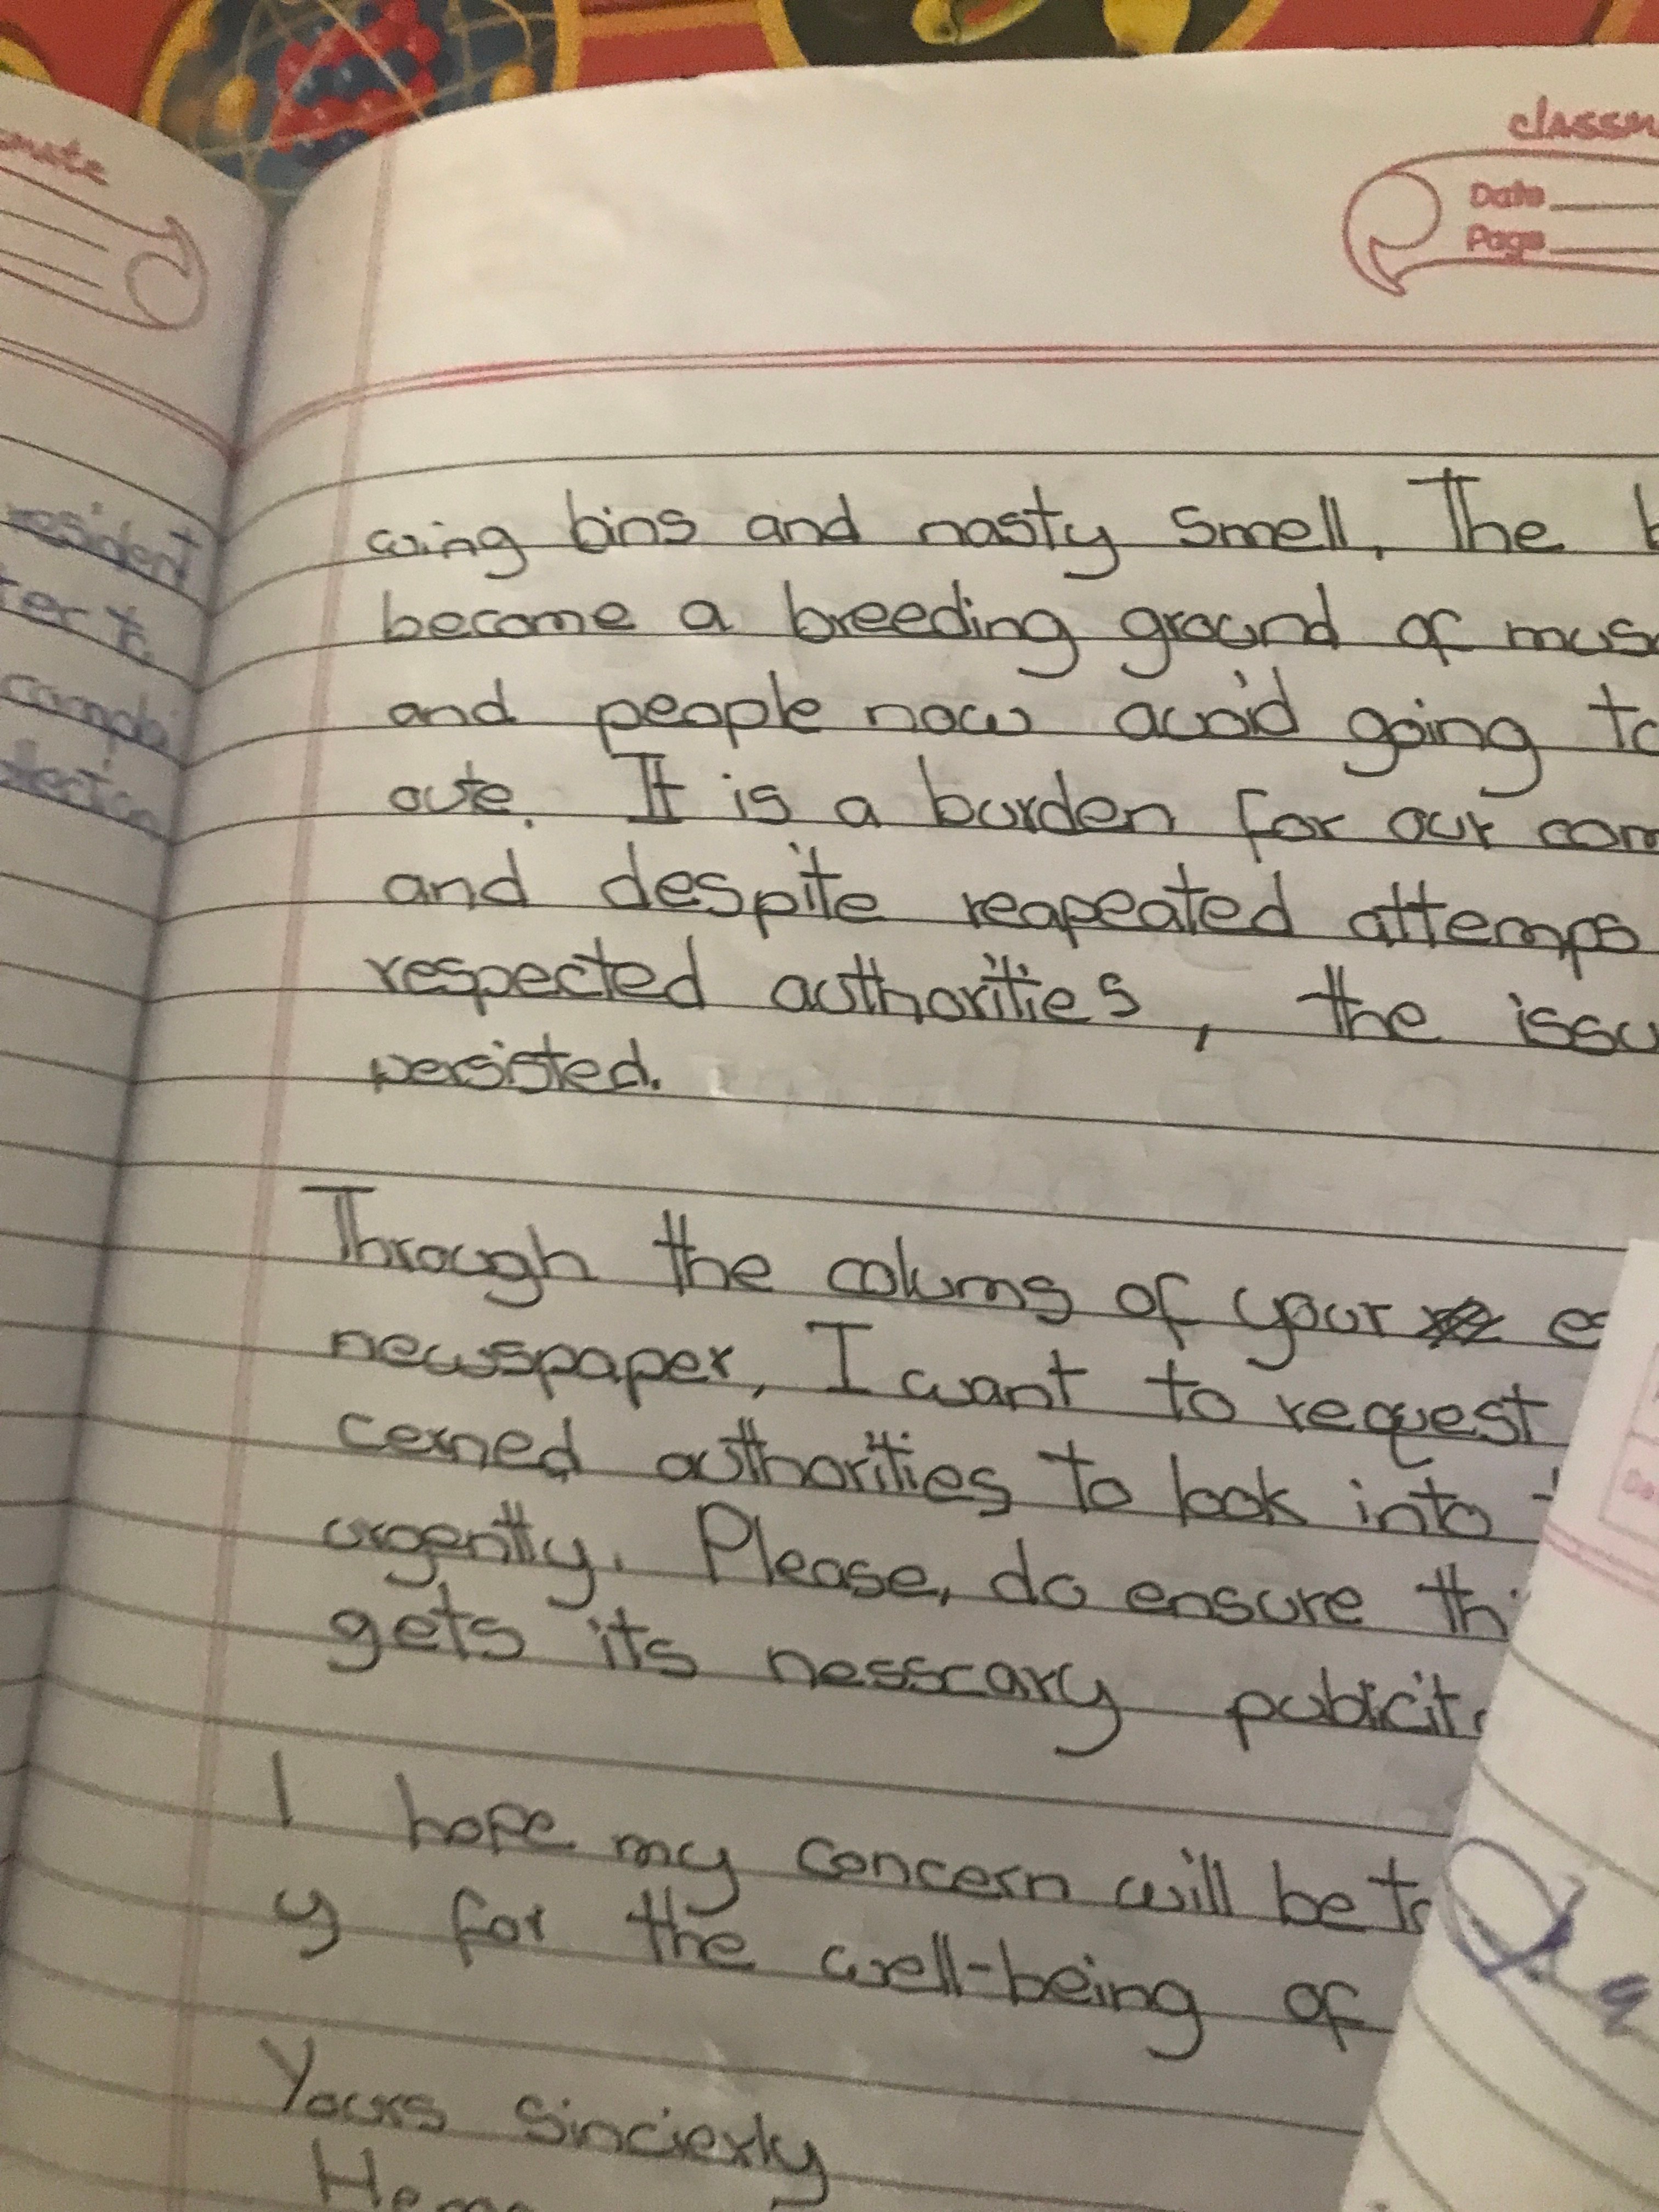 classm
Date
Page
resident
ter to
wing bins and nasty smell, The b
become a breeding ground of mus
and people now avoid going to
oute. It is a burden for our com
and despite reapeated attemps
respected authorities, the issu
persisted.
Through the colums of your es
newspaper, I want to request
cerned authorities to look into
urgently. Please, do ensure thi
gets its nesscary publicit
I hope my concern will be ta
y for the well-being of
Yours Sincierly